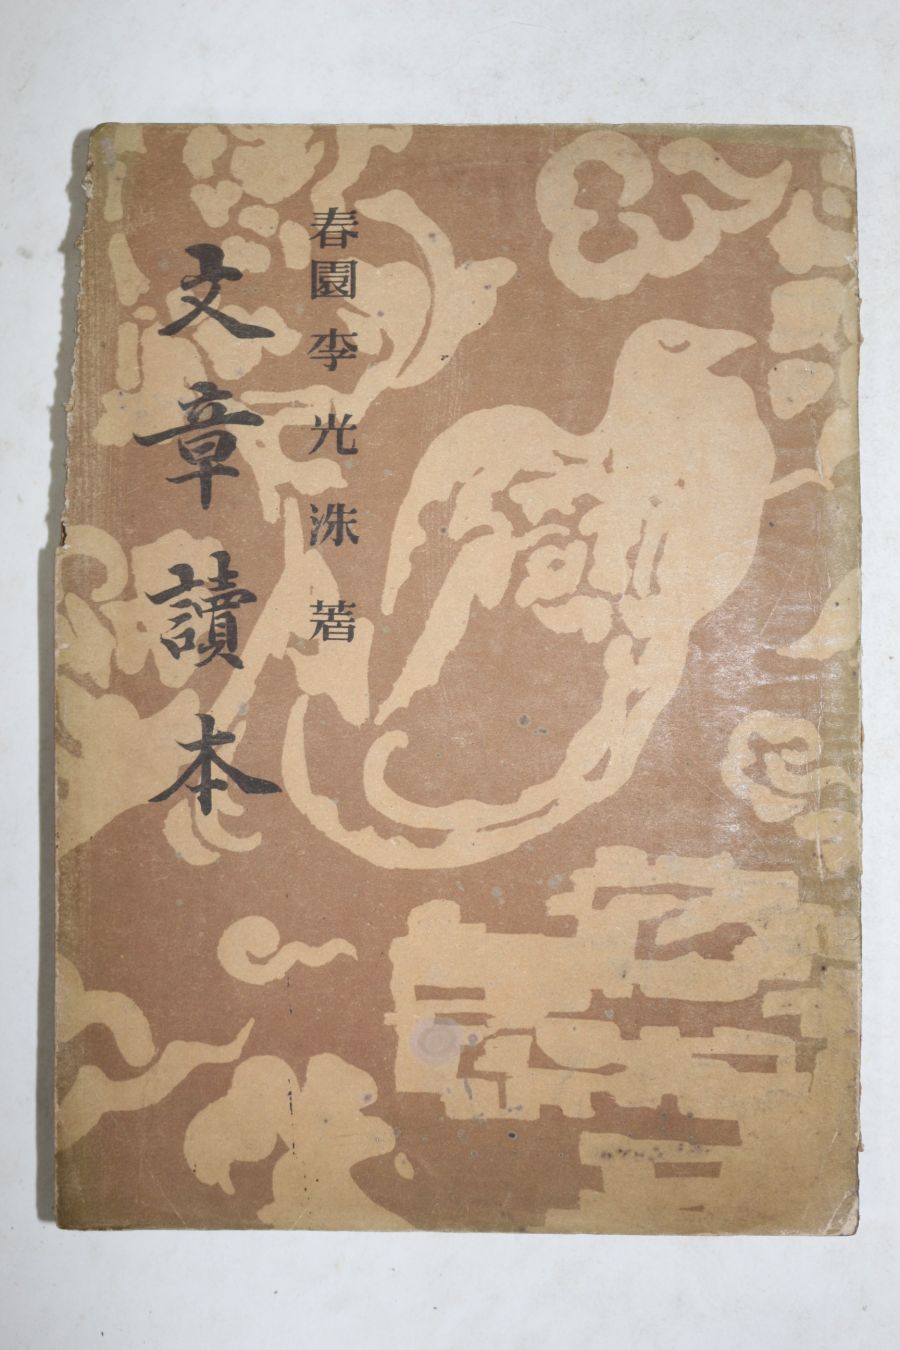 春園 李光洙 著
文章讀本